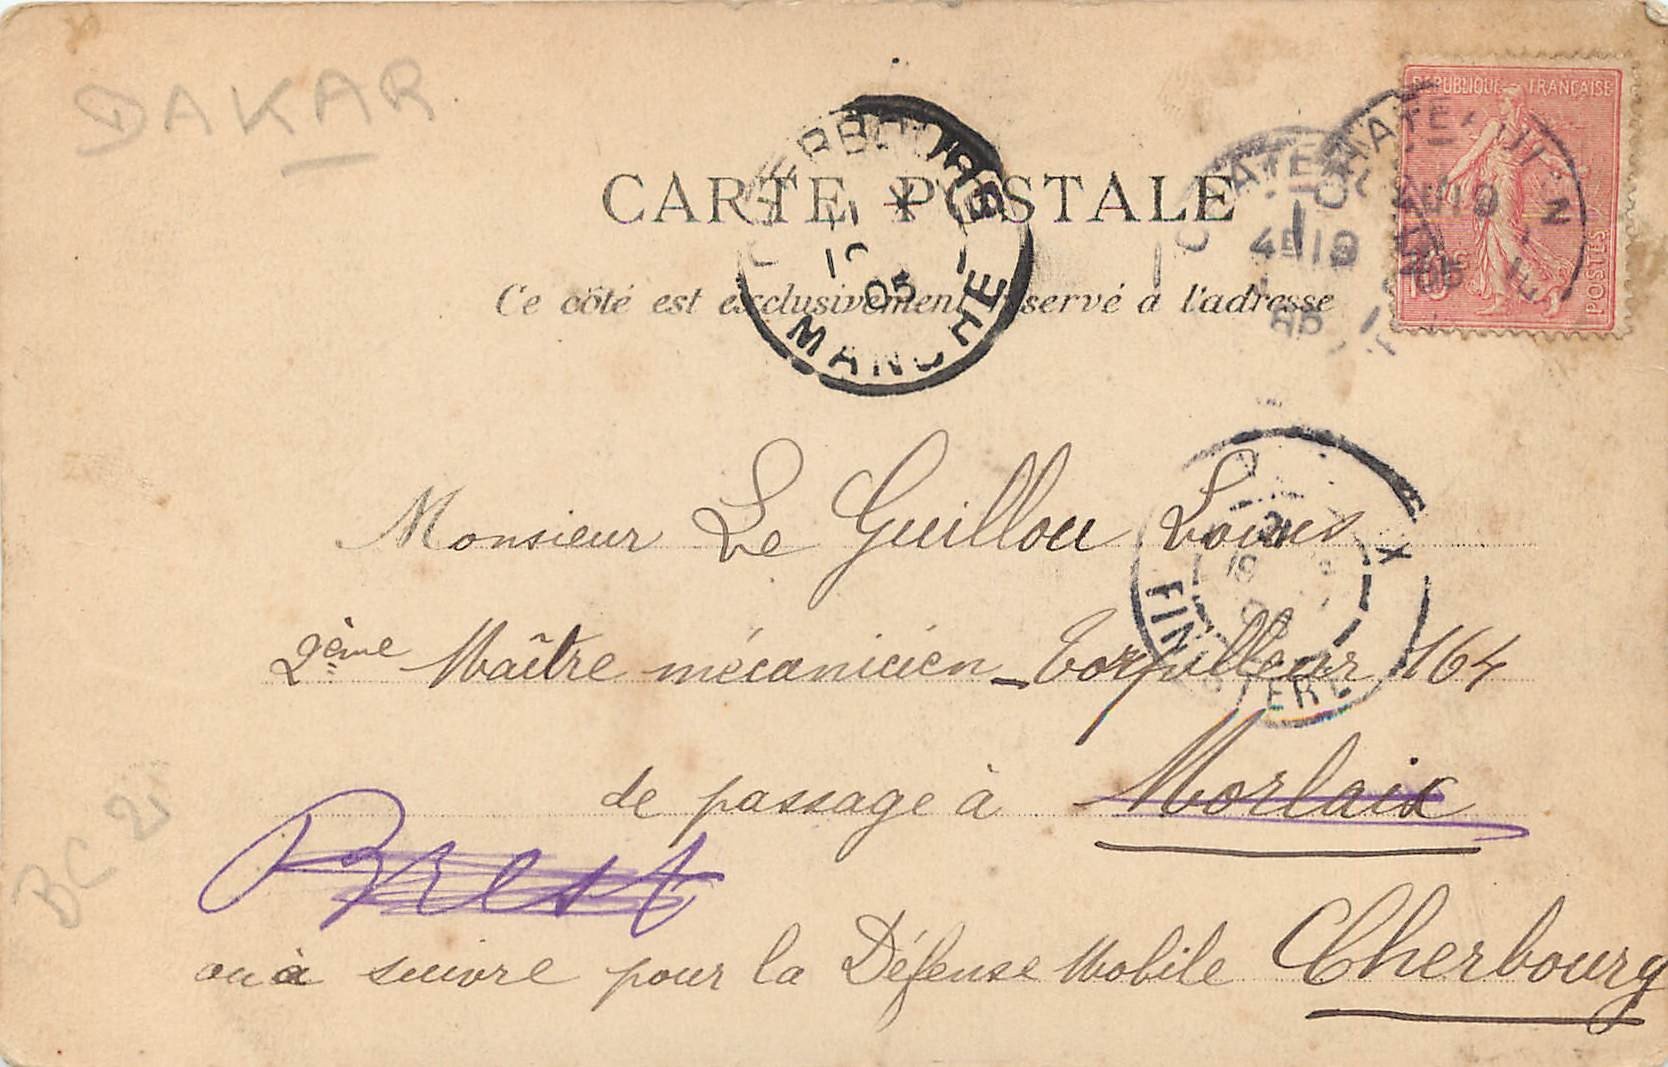 DAKAR
RÉPUBLIQUE FRANÇAISE
POSTES
CHATEAULIN
CHERBOURG
05
MANCHE
CARTE POSTALE
Ce côté est exclusivement réservé à l'adresse
FINISTERE
Monsieur Le Guillou Louis
2ème Maître mécanicien - Torpilleur 164
de passage à Morlaix
Brest
BC 21
ou à suivre pour la Défense Mobile Cherbourg